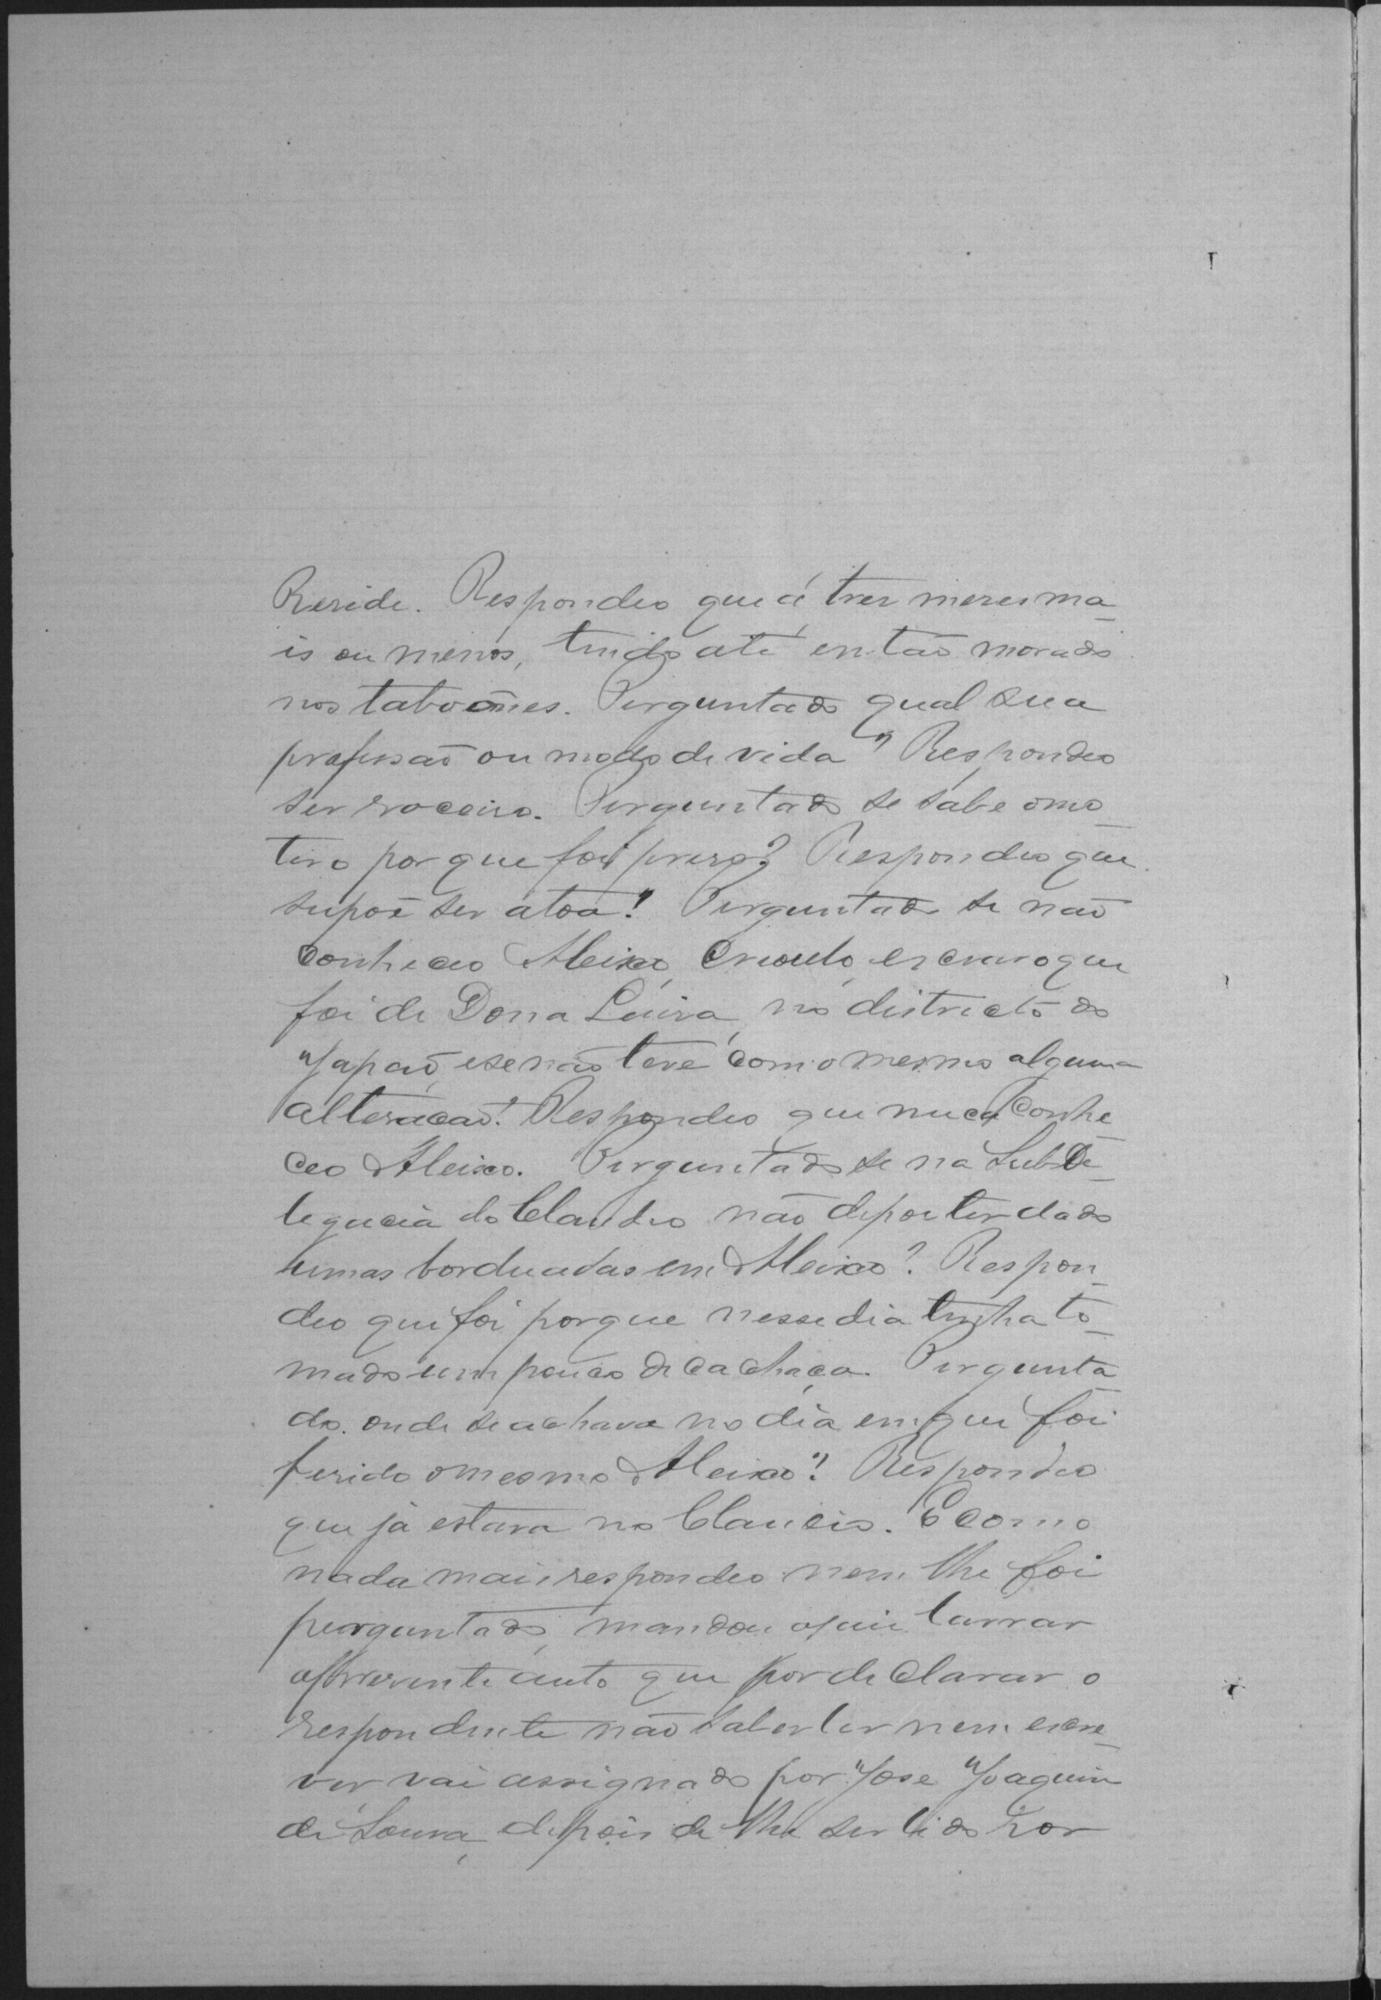 Reside. Respondeo que á tres meses ma-
is ou menos, tendo até então morado
nos taboões. Perguntado qual sua
profissão ou modo de vida? Respondeo
ser roceiro. Perguntado se sabe o mo-
tivo por que foi preso? Respondeo que
supoê ser atoa! Perguntado se não
conheceo Aleixo, Crioulo, escravo que
foi de Dona Luisa, no districto do
Japaõ, e se não teve com o mesmo alguma
alteracaõ? Respondeo que nuca Conhe-
ceo Aleixo. Perguntado se na SubDe-
legacia do Claudio não depos ter dado
humas borduadas em Aleixo? Respon-
deo que foi porque nesse dia tinha to-
mado um pouco de cachaça. Pergunta-
do. onde se achava no dia em que foi
ferido o mesmo Aleixo? Respondeo
que já estava no Claudio. E como
nada mais respondeo nem lhe foi
perguntado, mandou o juis lavrar
o presente auto que por declarar o
respondente não saber ler nem escre-
ver vai assignado por José Joaquim
de Sousa, depois de lhe ser lido por